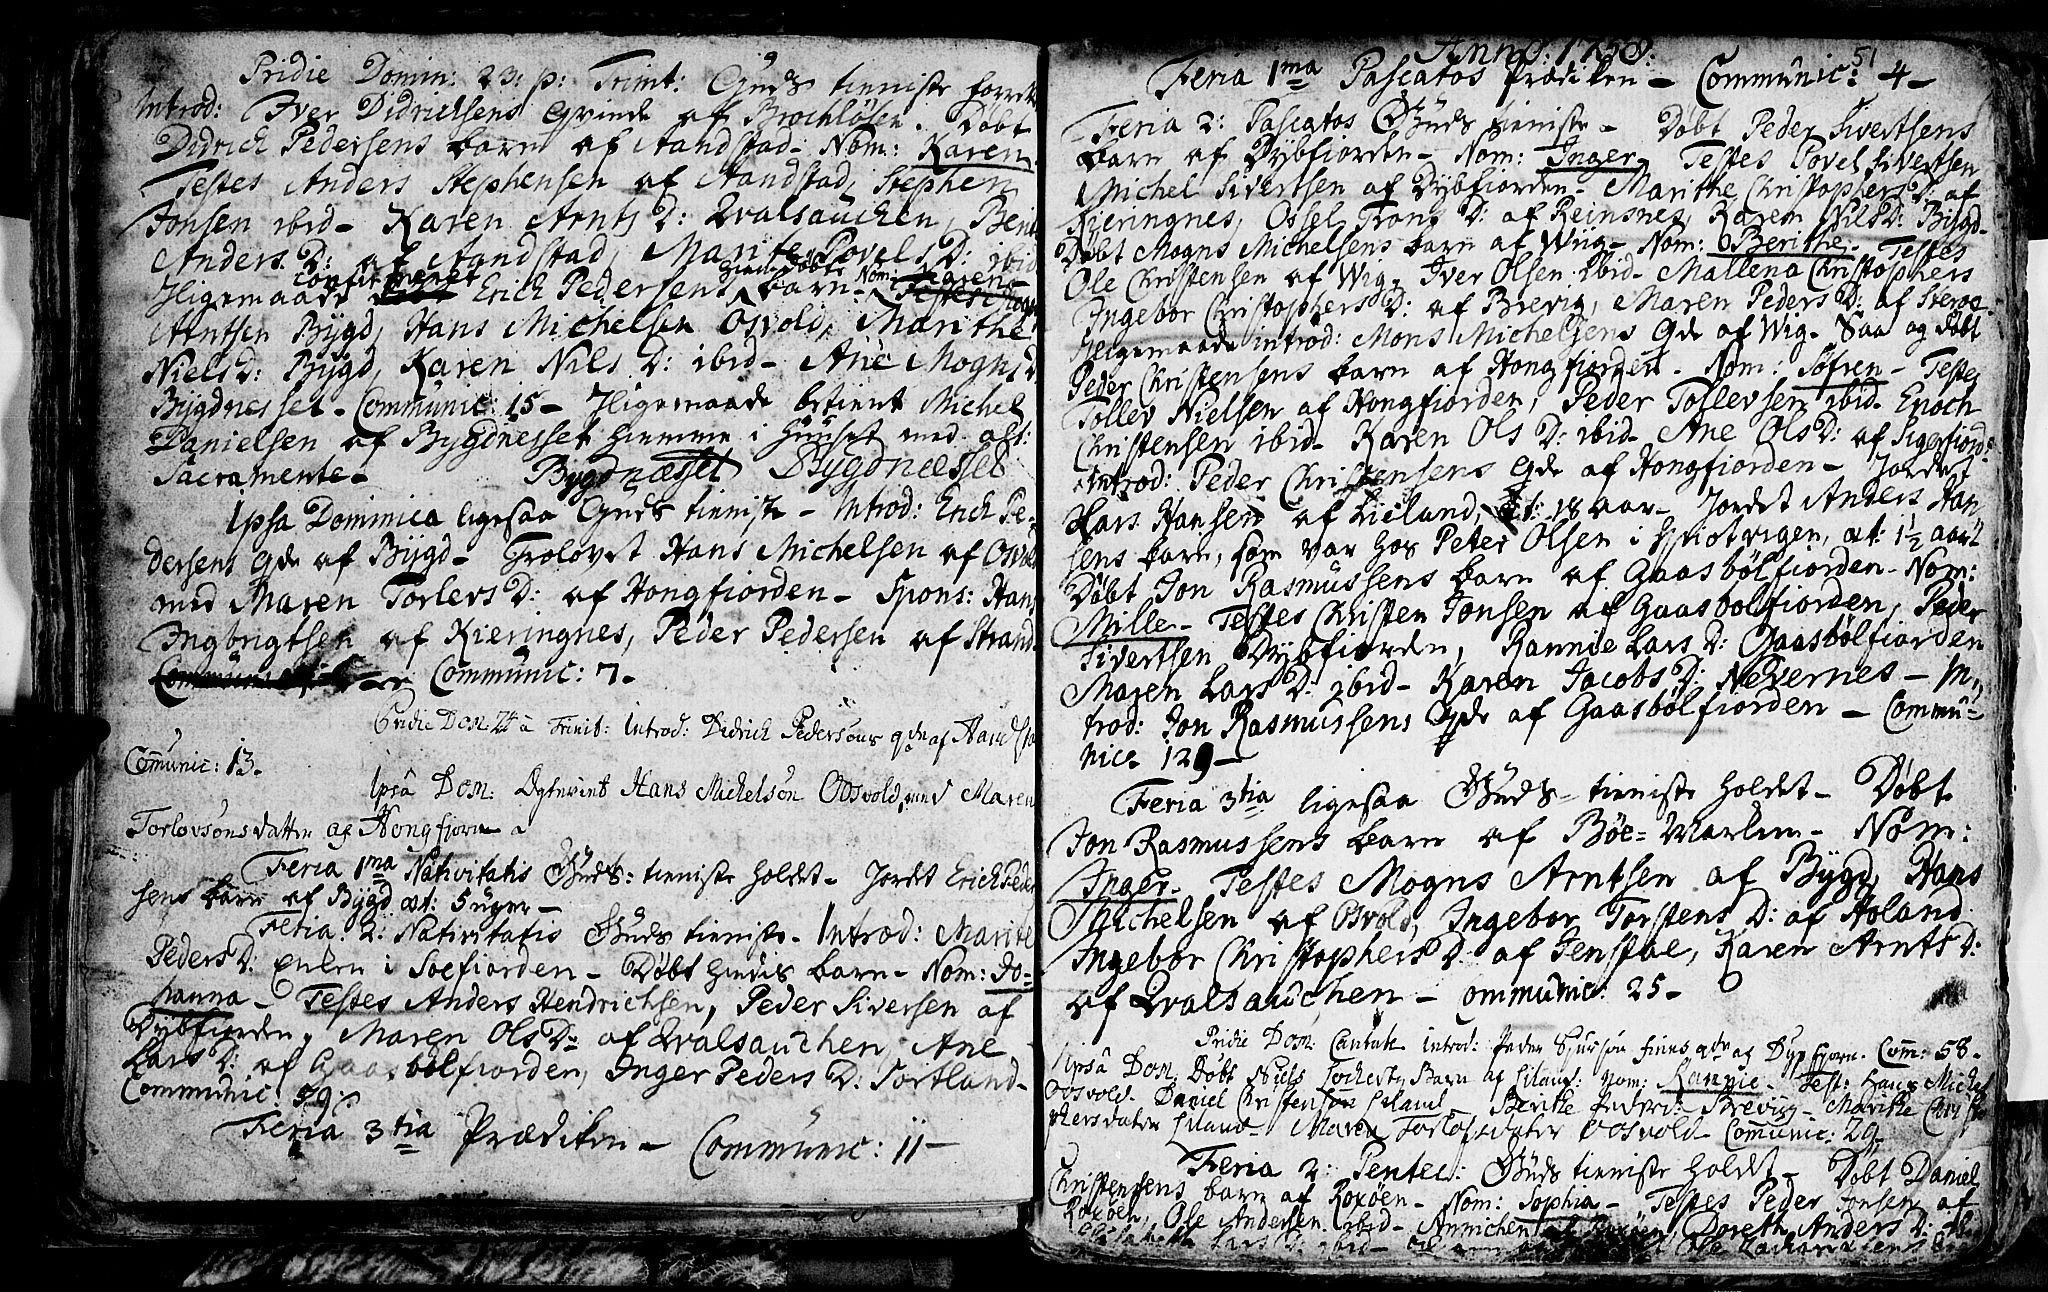 Pridie Domin: 23: p: Trinit: Guds tieniste forret
Introd: Iver Didrichsens Qvinde af Brochløsen. Døbt
Didrich Pedersens barn af Aandstad- Nom: Karen.
Testes Anders Stephensen af Aandstad, Stephen
Jonsen ibid- Karen Arnts D: Qvalsauchen, Berit
Anders D: af Aandstad, Marite Povels D: ibid
Iligemaade Confirmeret Erich Pedersens hiemme døbte barn- Nom:
Arntsen Bÿgd, Hans Michelsen Osvold, Marithe
Niels D: Bÿgd, Karen Nils D: ibid- Ane Mogns D
Bÿgdnesset- Communic: 15- Iligemaade betient Michel
Danielsen af Bÿgdnesset hiemme i Huuset med alt:
Sacramente- Bygdnæsset Bygdnæsset
Ipsa Dominica ligesaa Guds tieniste- Introd: Erich Pe-
dersens Qde af Bÿgd- Trolovet Hans Michelsen af Osvold
med Maren Torlevs D: af Hongfiorden- Spons: Hans
Ingbrigtsen af Kieringnes, Peder Pedersen af Strand-
Communic: 7-
Pridie Dom: 24 a Trinit: Introd: Didrich Pedersøns qde af Aandsta
Comunic: 13.
Ipsâ Dom: Ægteviet Hans Michelsøn Oosvold, med Maren
Torlovsønsdatter af Hongfjorn
Feria 1ma Nativitatis Guds: tieniste holdet- Jordet Erich Peder
sens barn af Bÿgd æt: 5 uger-
Feria: 2: Nativitatis Guds tieniste- Introd: Marite
Peders D: Enken i Soefiorden- Døbt hendis barn- Nom: Jo-
hanna- Testes Anders Hendrichsen, Peder Siversen af
Dÿbfiorden, Maren Ols D: af Qvalsauchen, Ane
Lars D: af Gaasbølfiorden, Inger Peders D: Sortland-
Communic: 59:
Feria 3tia Prædiken- Communic: 11-
Anno: 1758:
51
Feria 1ma Pascatos Prædiken- Communic: 4-
Feria 2: Pascatos Guds tieniste- Døbt Peder Sivertsens
barn af Dÿbfiorden- Nom: Inger- Testes Povel Sivertsen
Michel Sivertsen af Dÿbfiorden- Marithe Christophers D: af
Kieringnes, Ossel Trons D: af Reinsnes, Karen Nils D: Bÿgd-
Døbt Mogns Michelsens barn af Wiig- Nom: Berithe- Testes
Ole Christensen af Wig, Iver Olsen ibid- Mallena Christophers
Ingebor Christophers D: af Brevig, Maren Peders D: af
Iligemaade introd: Mons Michelsens Qde af Wig- Saa og døbt
Peder Christensens barn af Hongfiorden- Nom: Søfren- Testes
Tollev Nielsen af Hongfiorden, Peder Tollevsen ibid- Enoch
Christensen ibid- Karen Ols D: ibid- Ane Ols D: af Sigerfiord:
Introd: Peder Christensens Qde af Hongfiorden- Jordet
Lars Hansen af Liland, æt: 18 aar- Jordet Anders Han
sens barn, som var hos Peter Olsen i , æt: 1½ aar-
Døbt Jon Rasmussens barn af Gaasbølfiorden- Nom:
Mille- Testes Christen Jonsen af Gaasbølfiorden, Peder
Sivertsen Dÿbfiorden, Rannie Lars D: Gaasbølfiorden
Maren Lars D: ibid- Karen Jacobs D: - In-
trod: Jon Rasmussens Qde af Gaasbølfiorden- Commu-
nic: 129-
Feria 3tia ligesaa Guds- tieniste holdet- Døbt
Jon Rasmussens barn af Bøe- Marken- Nom:
Inger- Testes Mogns Arntsen af Bÿgd, Hans
Michelsen af Osvold, Ingebor Torstens D: af Holand
Ingebor Christophers D: af Jenstae, Karen Arnts D:
af Qvalsauchen- ommunic: 25-
Pridie Dom: Cantate Introd: Peder Siursøn Finns qde af Dypfjorn. Com: 58-
Ipsâ Dom. Døbt Niels Locherts Barn af Liland: Nom: Rannie- Test: Hans Michel
Oosvold- Daniel Christensøn Liland- Berithe Peders: Breviig- Marithe Christo
phersdater Liland- Maren Torlofsdater Oosvold- Comunic: 29-
Feria 2: Pentec: Guds tieniste holdet- Døbt Daniel
Christensens barn af Roxøen- Nom: Sophia- Testes Peder Jonsen af
Roxøen, Ole Andersen ibid- Annichen af Roxøen, Doreth Anders D:
Lars D: ibid- Ole Zachariasens